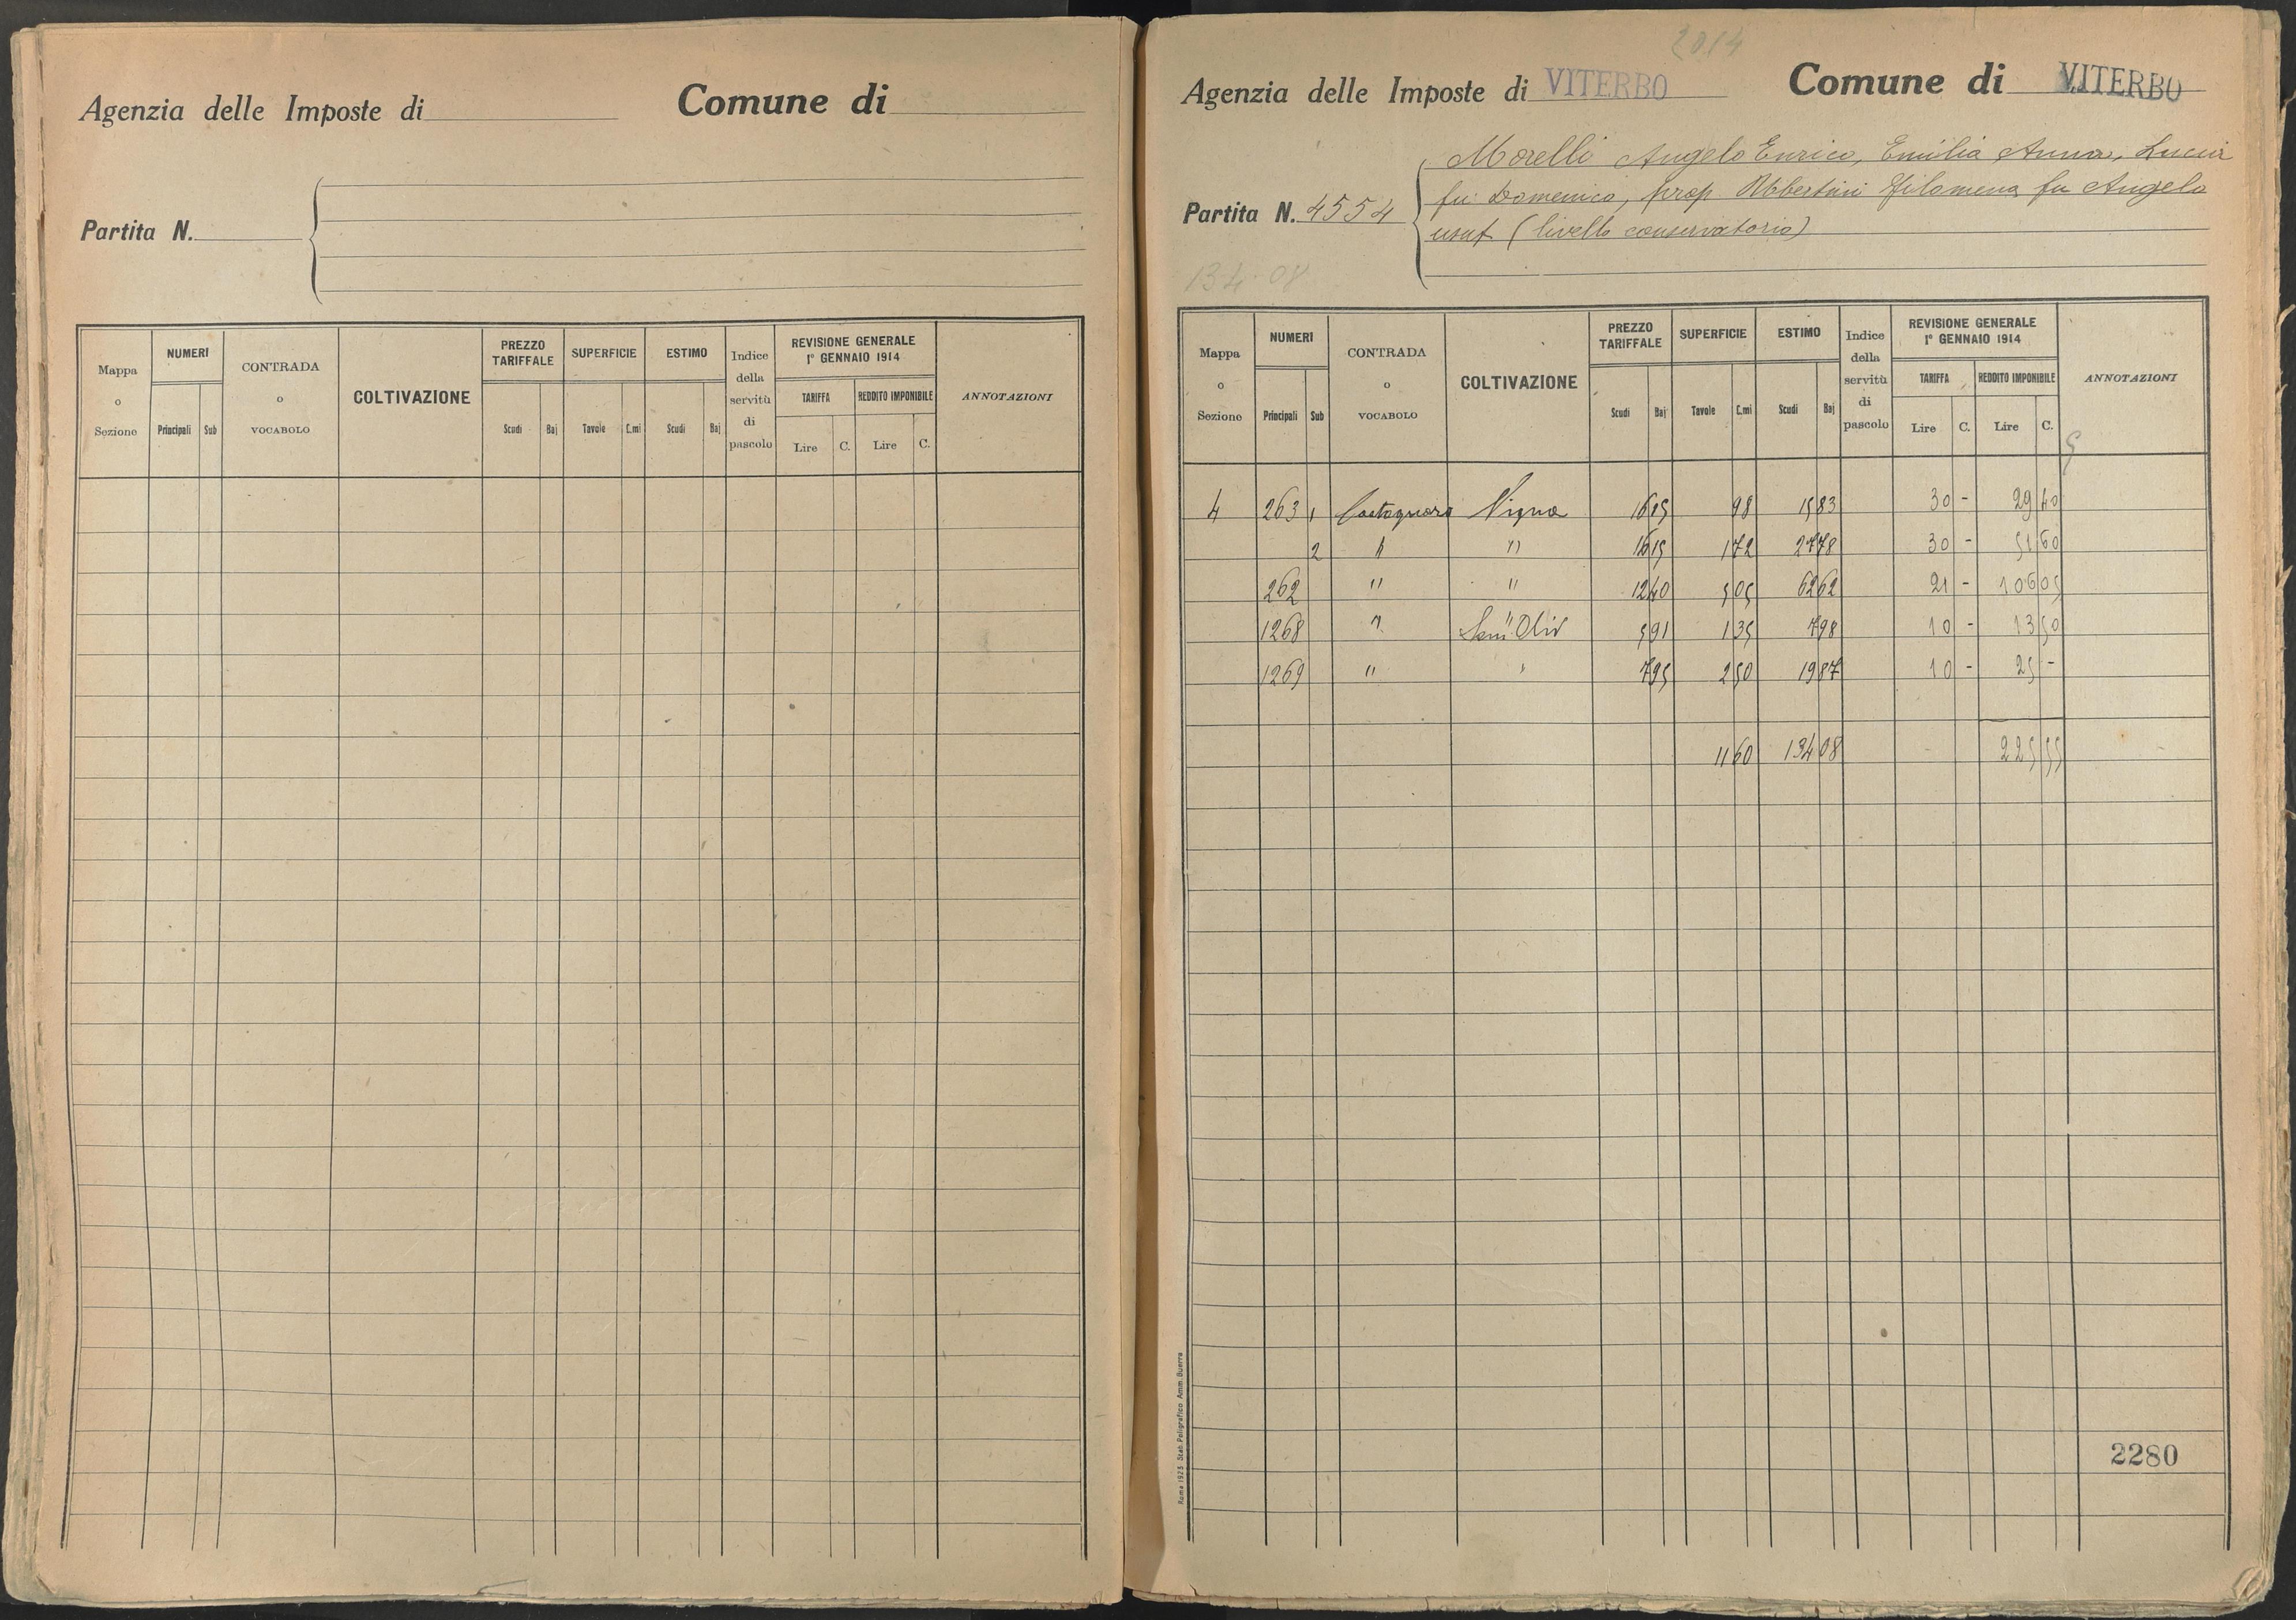 Agenzia delle Imposte di Comune di
Partita N.
Mappa o Sezione NUMERI Principali Sub CONTRADA o VOCABOLO COLTIVAZIONE PREZZO TARIFFALE Scudi Baj SUPERFICIE Tavole C.mi ESTIMO Scudi Baj Indice della servitù di pascolo REVISIONE GENERALE 1° GENNAIO 1914 TARIFFA Lire C. REDDITO IMPONIBILE Lire C. ANNOTAZIONI
2014
Agenzia delle Imposte di VITERBO Comune di VITERBO
Morelli Angelo Enrico, Emilia Anna, Lucia
Partita N. 4554 fu Domenico, prop Filomena fu Angelo
usuf (livello conservatorio)
134.08
Mappa o Sezione NUMERI Principali Sub CONTRADA o VOCABOLO COLTIVAZIONE PREZZO TARIFFALE Scudi Baj SUPERFICIE Tavole C.mi ESTIMO Scudi Baj Indice della servitù di pascolo REVISIONE GENERALE 1° GENNAIO 1914 TARIFFA Lire C. REDDITO IMPONIBILE Lire C. ANNOTAZIONI
4 263 1 Vigna 16 15 98 15 83 30 - 29 40
2 " " 16 15 1 72 27 78 30 - 51 60
262 " " 12 40 5 05 62 62 21 - 106 05
1268 " Sem Oliv 5 91 1 35 7 98 10 - 13 50
1269 " " 7 95 2 50 19 87 10 - 25 -
11 60 134 08 225 55
2280
Roma 1925 Stab. Poligrafico Amm. Guerra